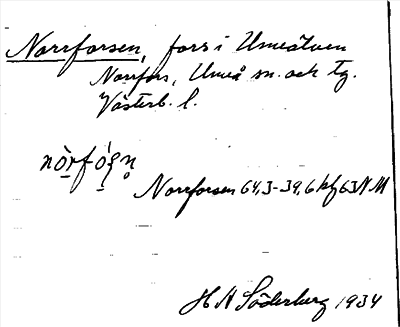 Norrforsen, fors i Umeälven
Norrfors, Umeå sn. och tg.
Västerb. l.
nòrfóʂn̥
Norrforsen 64,3-39,6 kbl 63 N M
H A Söderberg 1934